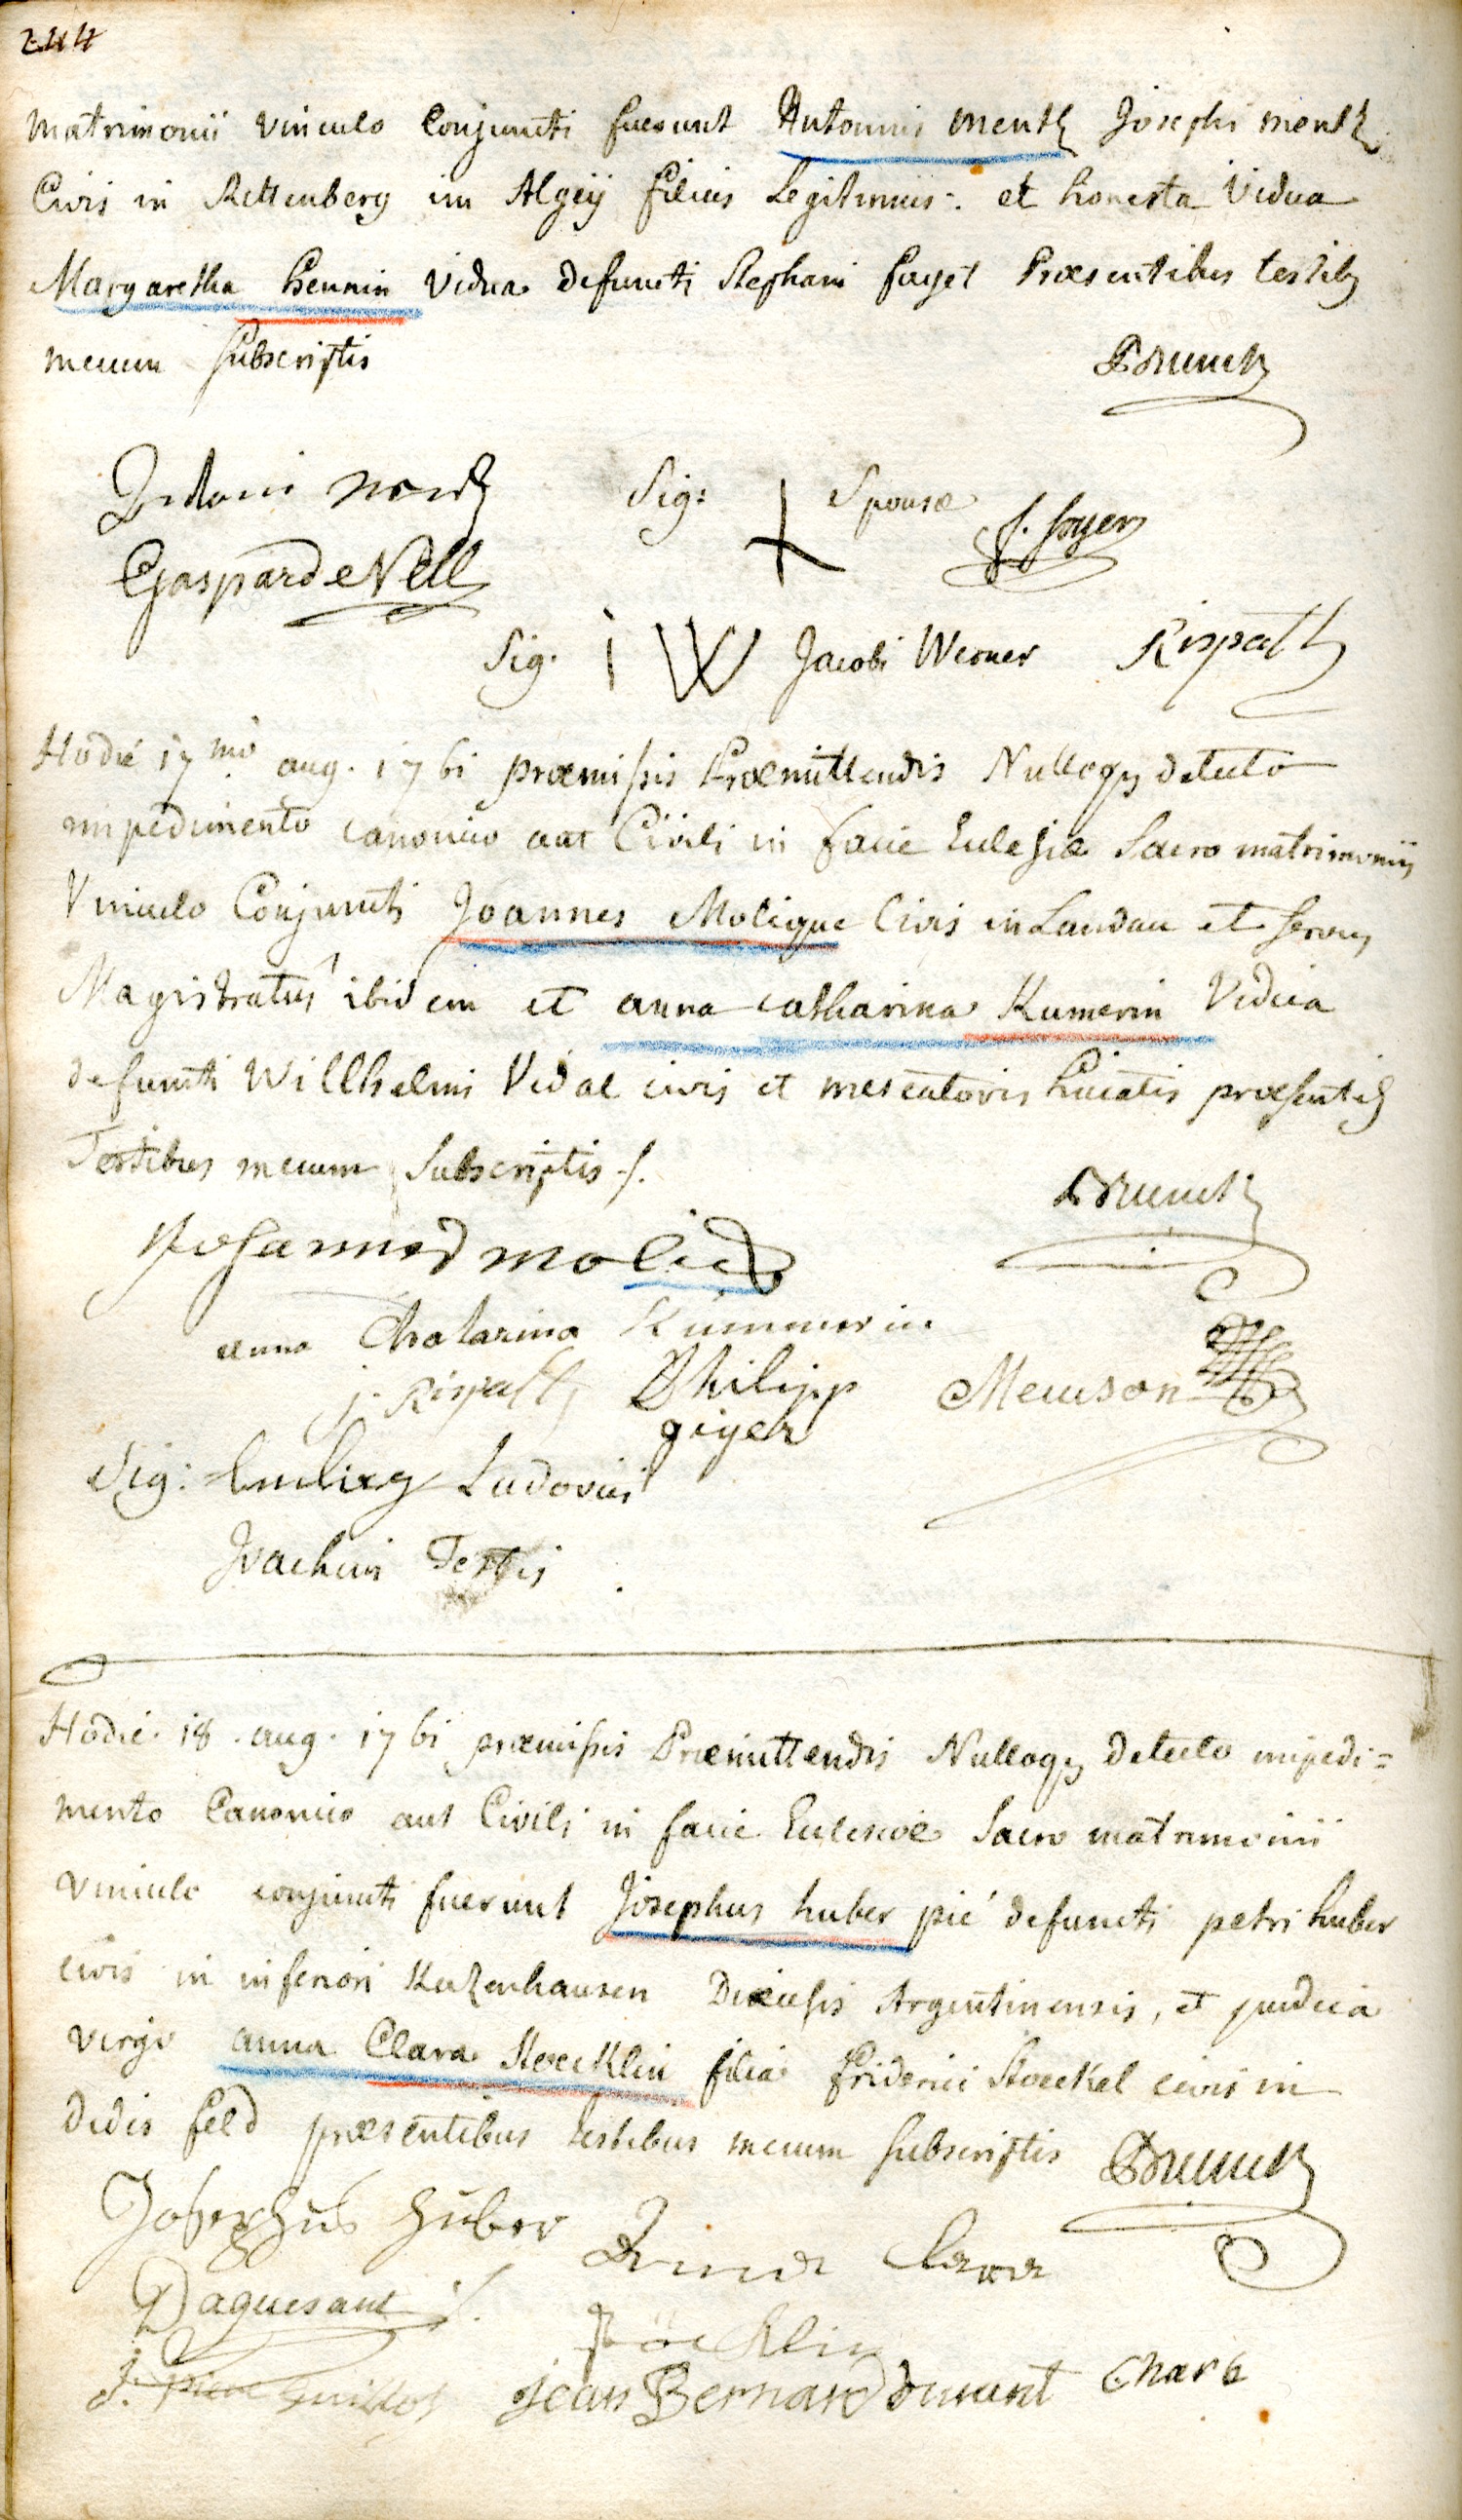 244
matrimonii vinculo Conjuncti fuerunt Antonius mentz Josephi mentz
Civis in Rettenberg im Algey filius Legitimus. et honesta Vidua
Margaretha hennin Vidua defuncti Stephani fayet Præsentibus testib9
mecum subscriptis Brunck
Antoni
Sig: Spousæ
Gaspard Nell
Sig. i W Jacobi Werner Rispalt
Hodié 17mo aug. 1761 præmissis Præmittendis Nulloq3 detecto
impedimento canonico aut Civili in facie Eclesiæ Sacro matrimonij
Vinculo Conjuncti Joannes Molique Civis in Landau et servus
Magistratus ibidem et anna catharina Kumerin Vidua
defuncti Willhelmi Vidal civis et mercatoris huiatis præsentib9
Testibus mecum Subscriptis ./.
Brunck
Johannes
anna Chatarina Kümmerin
j. Rispalt Philipp giger Mewson
Sig: Ludovici
Joachim Testis
Hodié. 18. aug. 1761 præmissis Præmittendis Nulloq3 detecto impedi=
mento Canonico aut Civili in facie Eclesiæ Sacro matrimonii
vinculo conjuncti fuerunt Josephus huber pié defuncti petri huber
civis in inferiori Kutzenhausen Diœcesis Argentinensis, et pudica
virgo anna Clara Stoecklin filia friderici Stoeckel civis in
Didis feld præsentibus testibus mecum subscriptis Brunck
Josephus Huber Anna Clara
Daguesant
Stöcklin
J. pierre Guillot jean Bernard durant